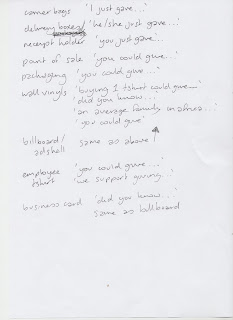 carrier bags 'I just gave...'
delivery boxes / 'he/she just gave...'
receipt holder 'you just gave...'
point of sale 'you could give...'
packaging 'you could give...'
wall vinyls 'buying 1 tshirt could give...'
'did you know...'
'an average family in africa...'
'you could give'
billboard/ same as above
adshell
employee 'you could give...'
tshirt 'we support giving...'
business card 'did you know...'
same as billboard